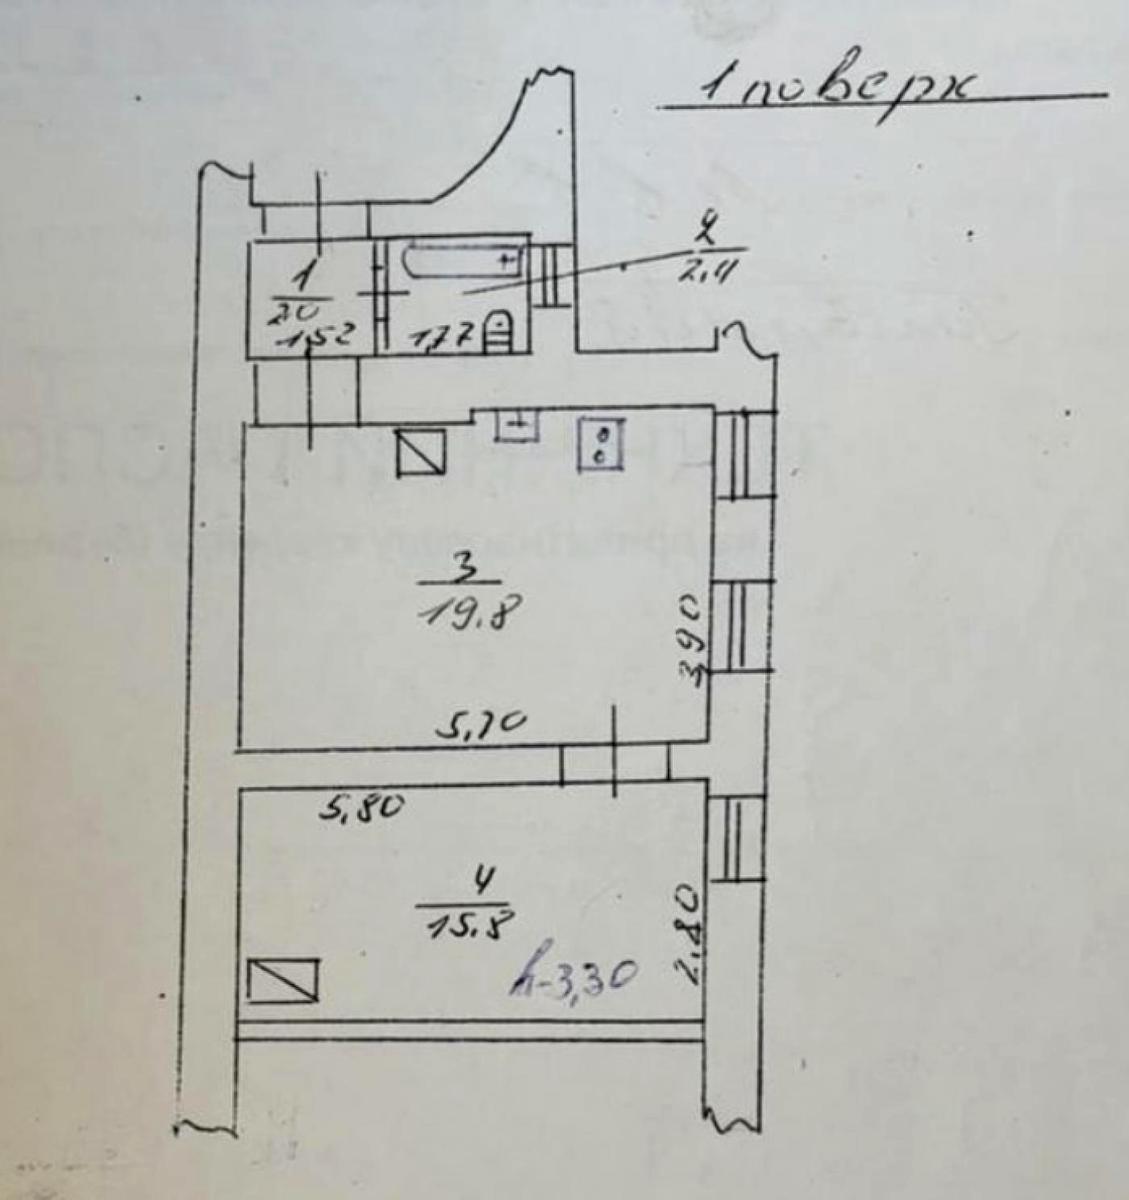 1 поверх
2
2,4
1
2,0
1,52
1,77
3
19.8
3,90
5,70
5,80
4
15.8
2.80
h-3,30